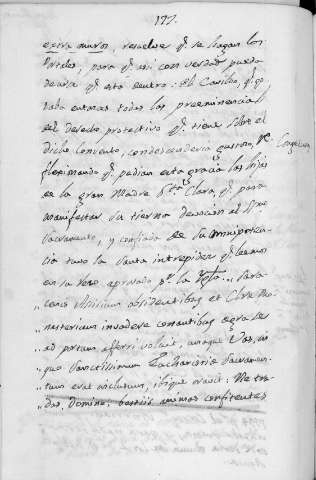 177.
extra muros, resuelve q.e se hagan los
Portales, para q.e asi con verdad pueda
decirse q.e está dentro. El Cavildo, q.e go-
zaba entonces todas las preeminencias
del derecho protectivo q.e tiene sobre el
dicho Convento, condescendería gustoso, re-
flexionando q.e pedian esta gracia las hijas
de la gran Madre S.ta Clara, q.e para
manifestar su tierna devocion al S.mo
Sacramento, y confiada de su omnipoten-
cia tuvo la santa intrepidez q.e leemos
en su rezo, aprobado p.r la Ygla. „ Sara-
„ cenis Assisium obsidentibus et Clarae Mo-
„ nasterium invadere conantibus aegra se
„ ad portam afferri voluit, unaque vas, in
quo Sanctissimum Eucharistiae Sacramen-
„ tum erat inclusum, ibique oravit: Ne tra-
„ das, Domine, bestiis animas confitentes